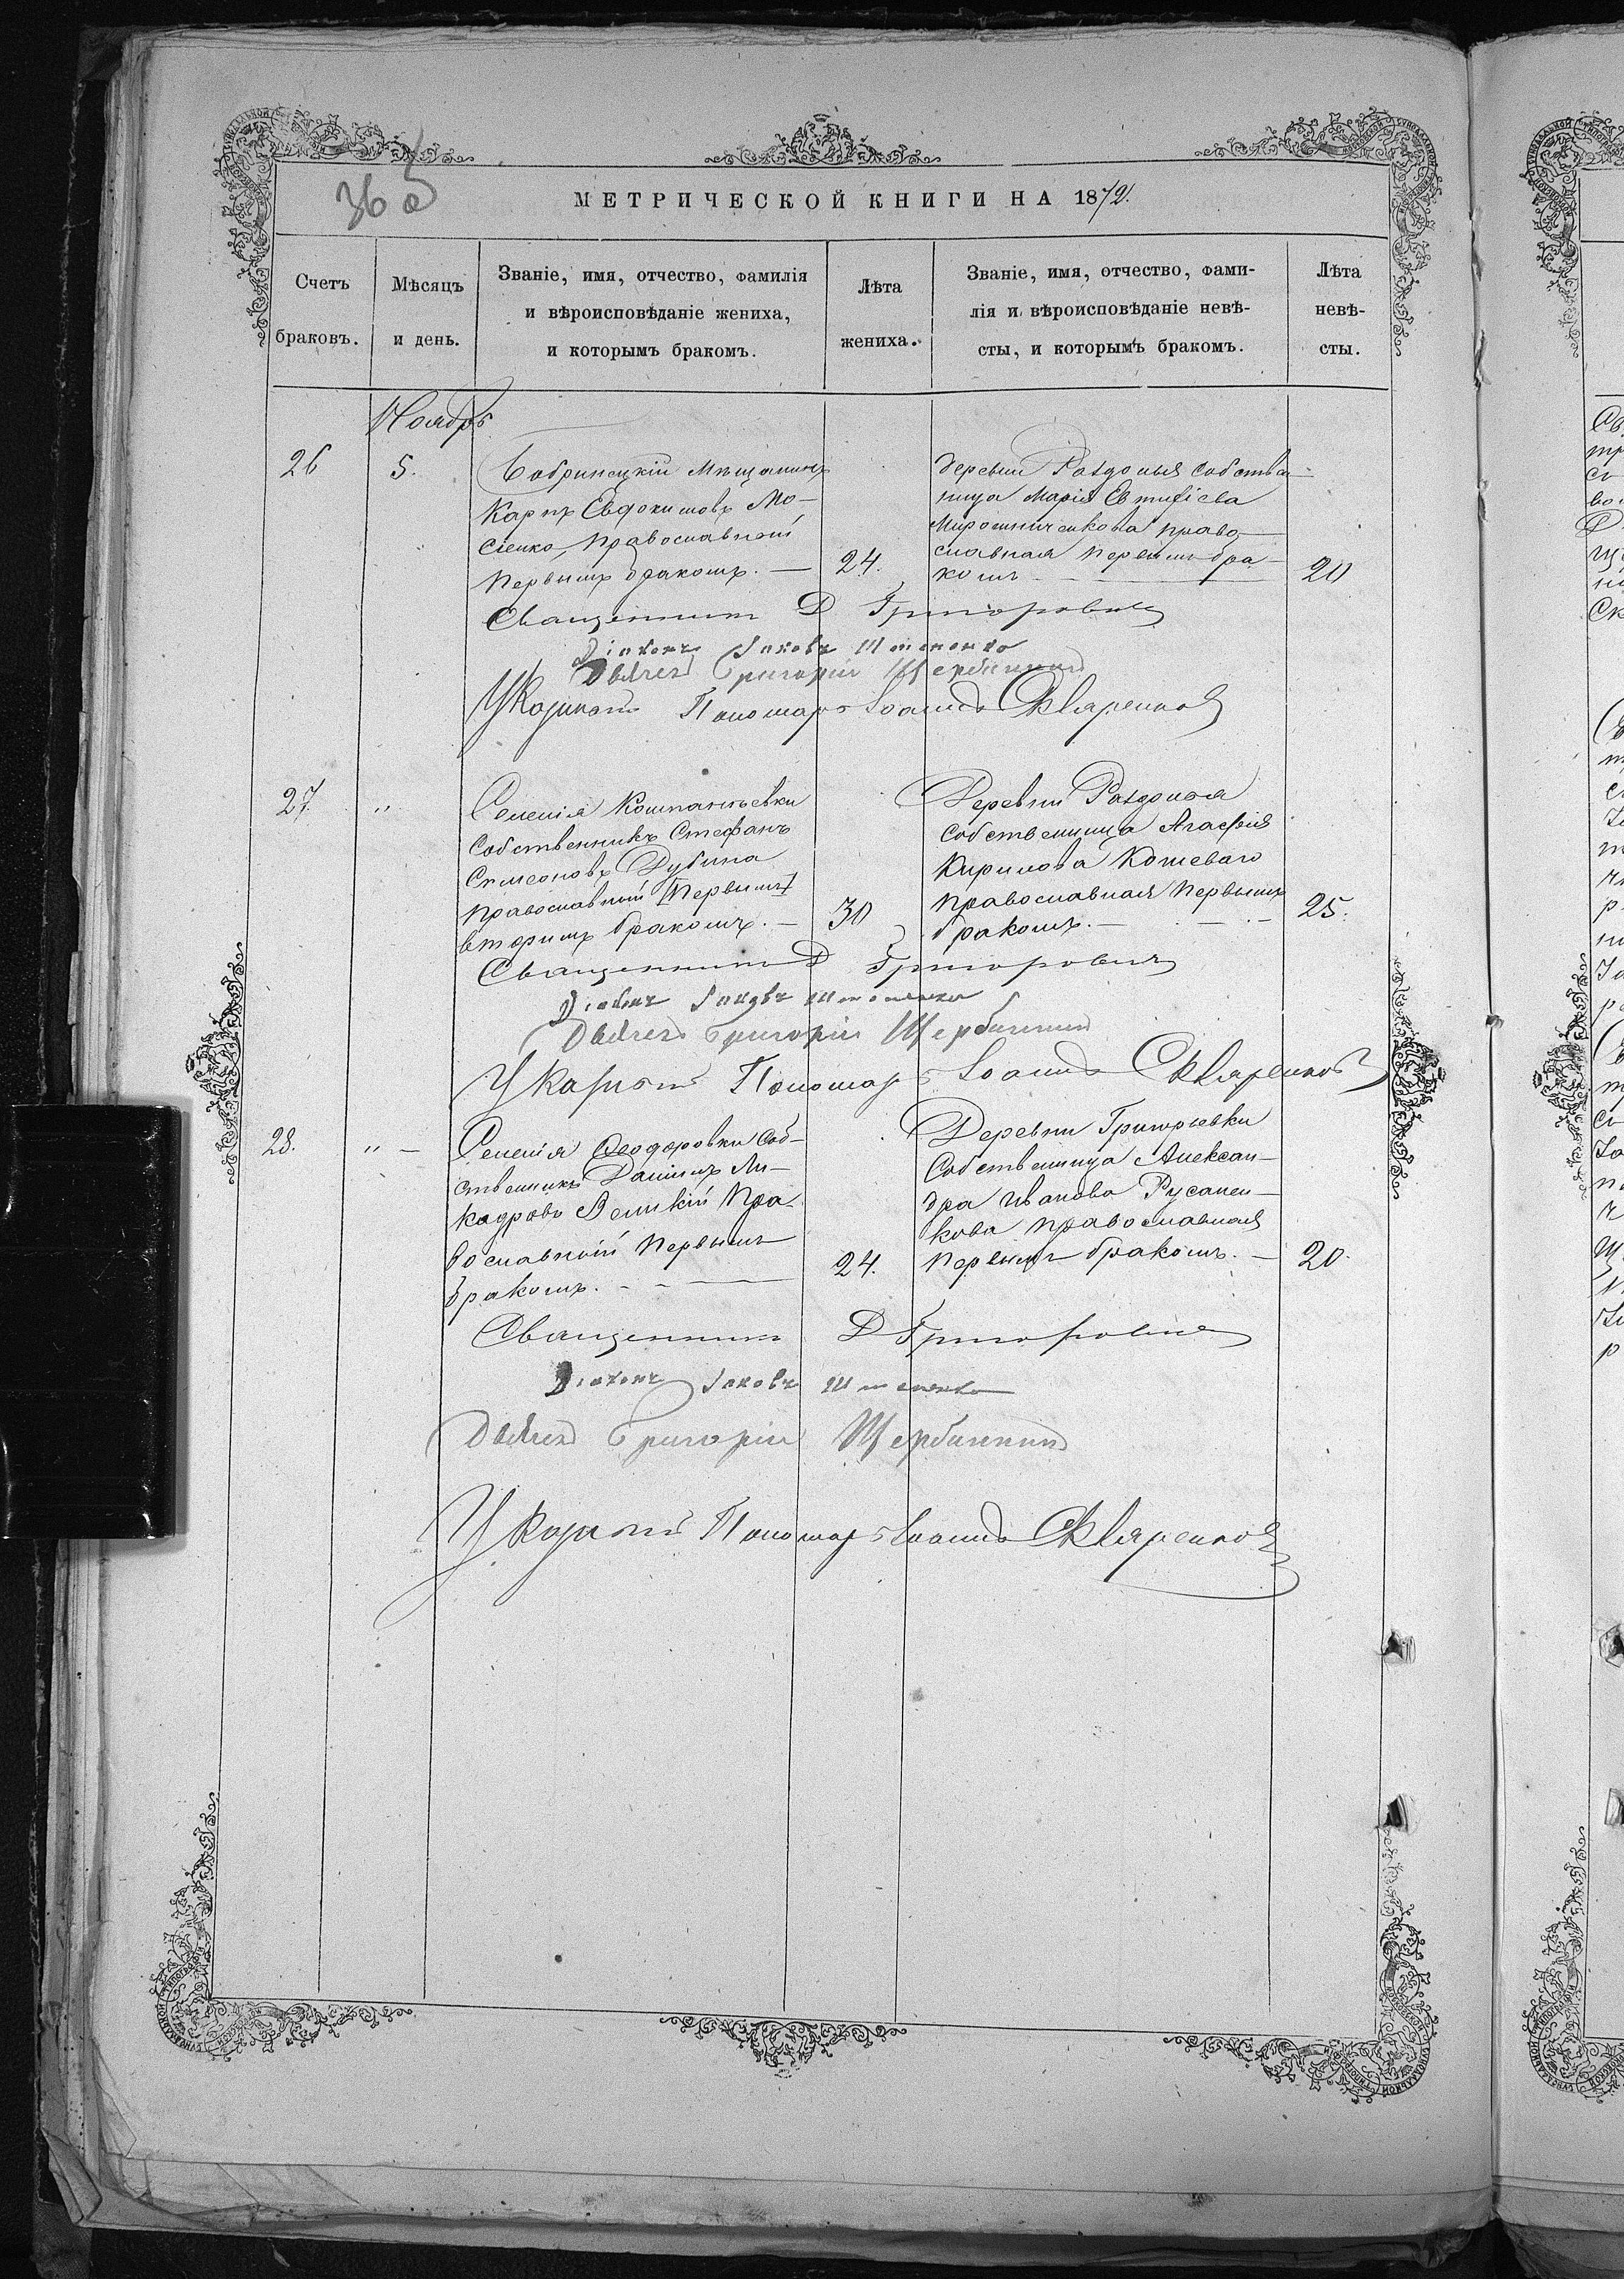 36 об
МЕТРИЧЕСКОЙ КНИГИ НА 1872.
Счетъ браковъ.
Мѣсяцъ и день.
Званіе, имя, отчество, фамилія
и вѣроисповѣданіе жениха,
и которымъ бракомъ.
Лѣта жениха.
Званіе, имя, отчество, фами-
лія и вѣроисповѣданіе невѣ-
сты, и которымъ бракомъ.
Лѣта невѣ-
сты.
Ноябрь
26
5.
Бобринецкій Мѣщанинъ
Карпъ Евдокимовъ Мо-
сіенко, Православный
Первымъ бракомъ. —
24.
деревни Раздолья собствен-
ница Марія Евтифіева
Мирошниченкова право-
славная первымъ бра-
комъ —
20
Священникъ Д Григоровичъ
Діаконъ Іаковъ
Дьячекъ Григорій Щербинкинъ
Указный Пономарь Іоаннъ Скляренков
27.
"
Селенія Компанѣевки
собственникъ Стефанъ
Симеоновъ Дубина
православный [Первымъ]
вторымъ бракомъ. —
30
Деревни Раздолья
собственница Агафія
Кирилова Кошеваго
православная первымъ
бракомъ. —
25.
Священникъ Д Григоровичъ
Діаконъ Іаковъ
Дьячекъ Григорій Щербинкинъ
Указный Пономарь Іоаннъ Скляренков
28.
" —
Селенія Феодоровки Соб-
ственникъ Даніилъ Ни-
кандровъ Великій Пра-
вославный Первымъ
бракомъ. — — —
24.
Деревни Григорьевки
Собственница Алексан-
дра Иванова Русанен-
кова православная
первымъ бракомъ. —
20.
Священникъ Д Григоровичъ
Діаконъ Іаковъ
Дьячекъ Григорій Щербинкинъ
Указный Пономарь Іоаннъ Скляренков